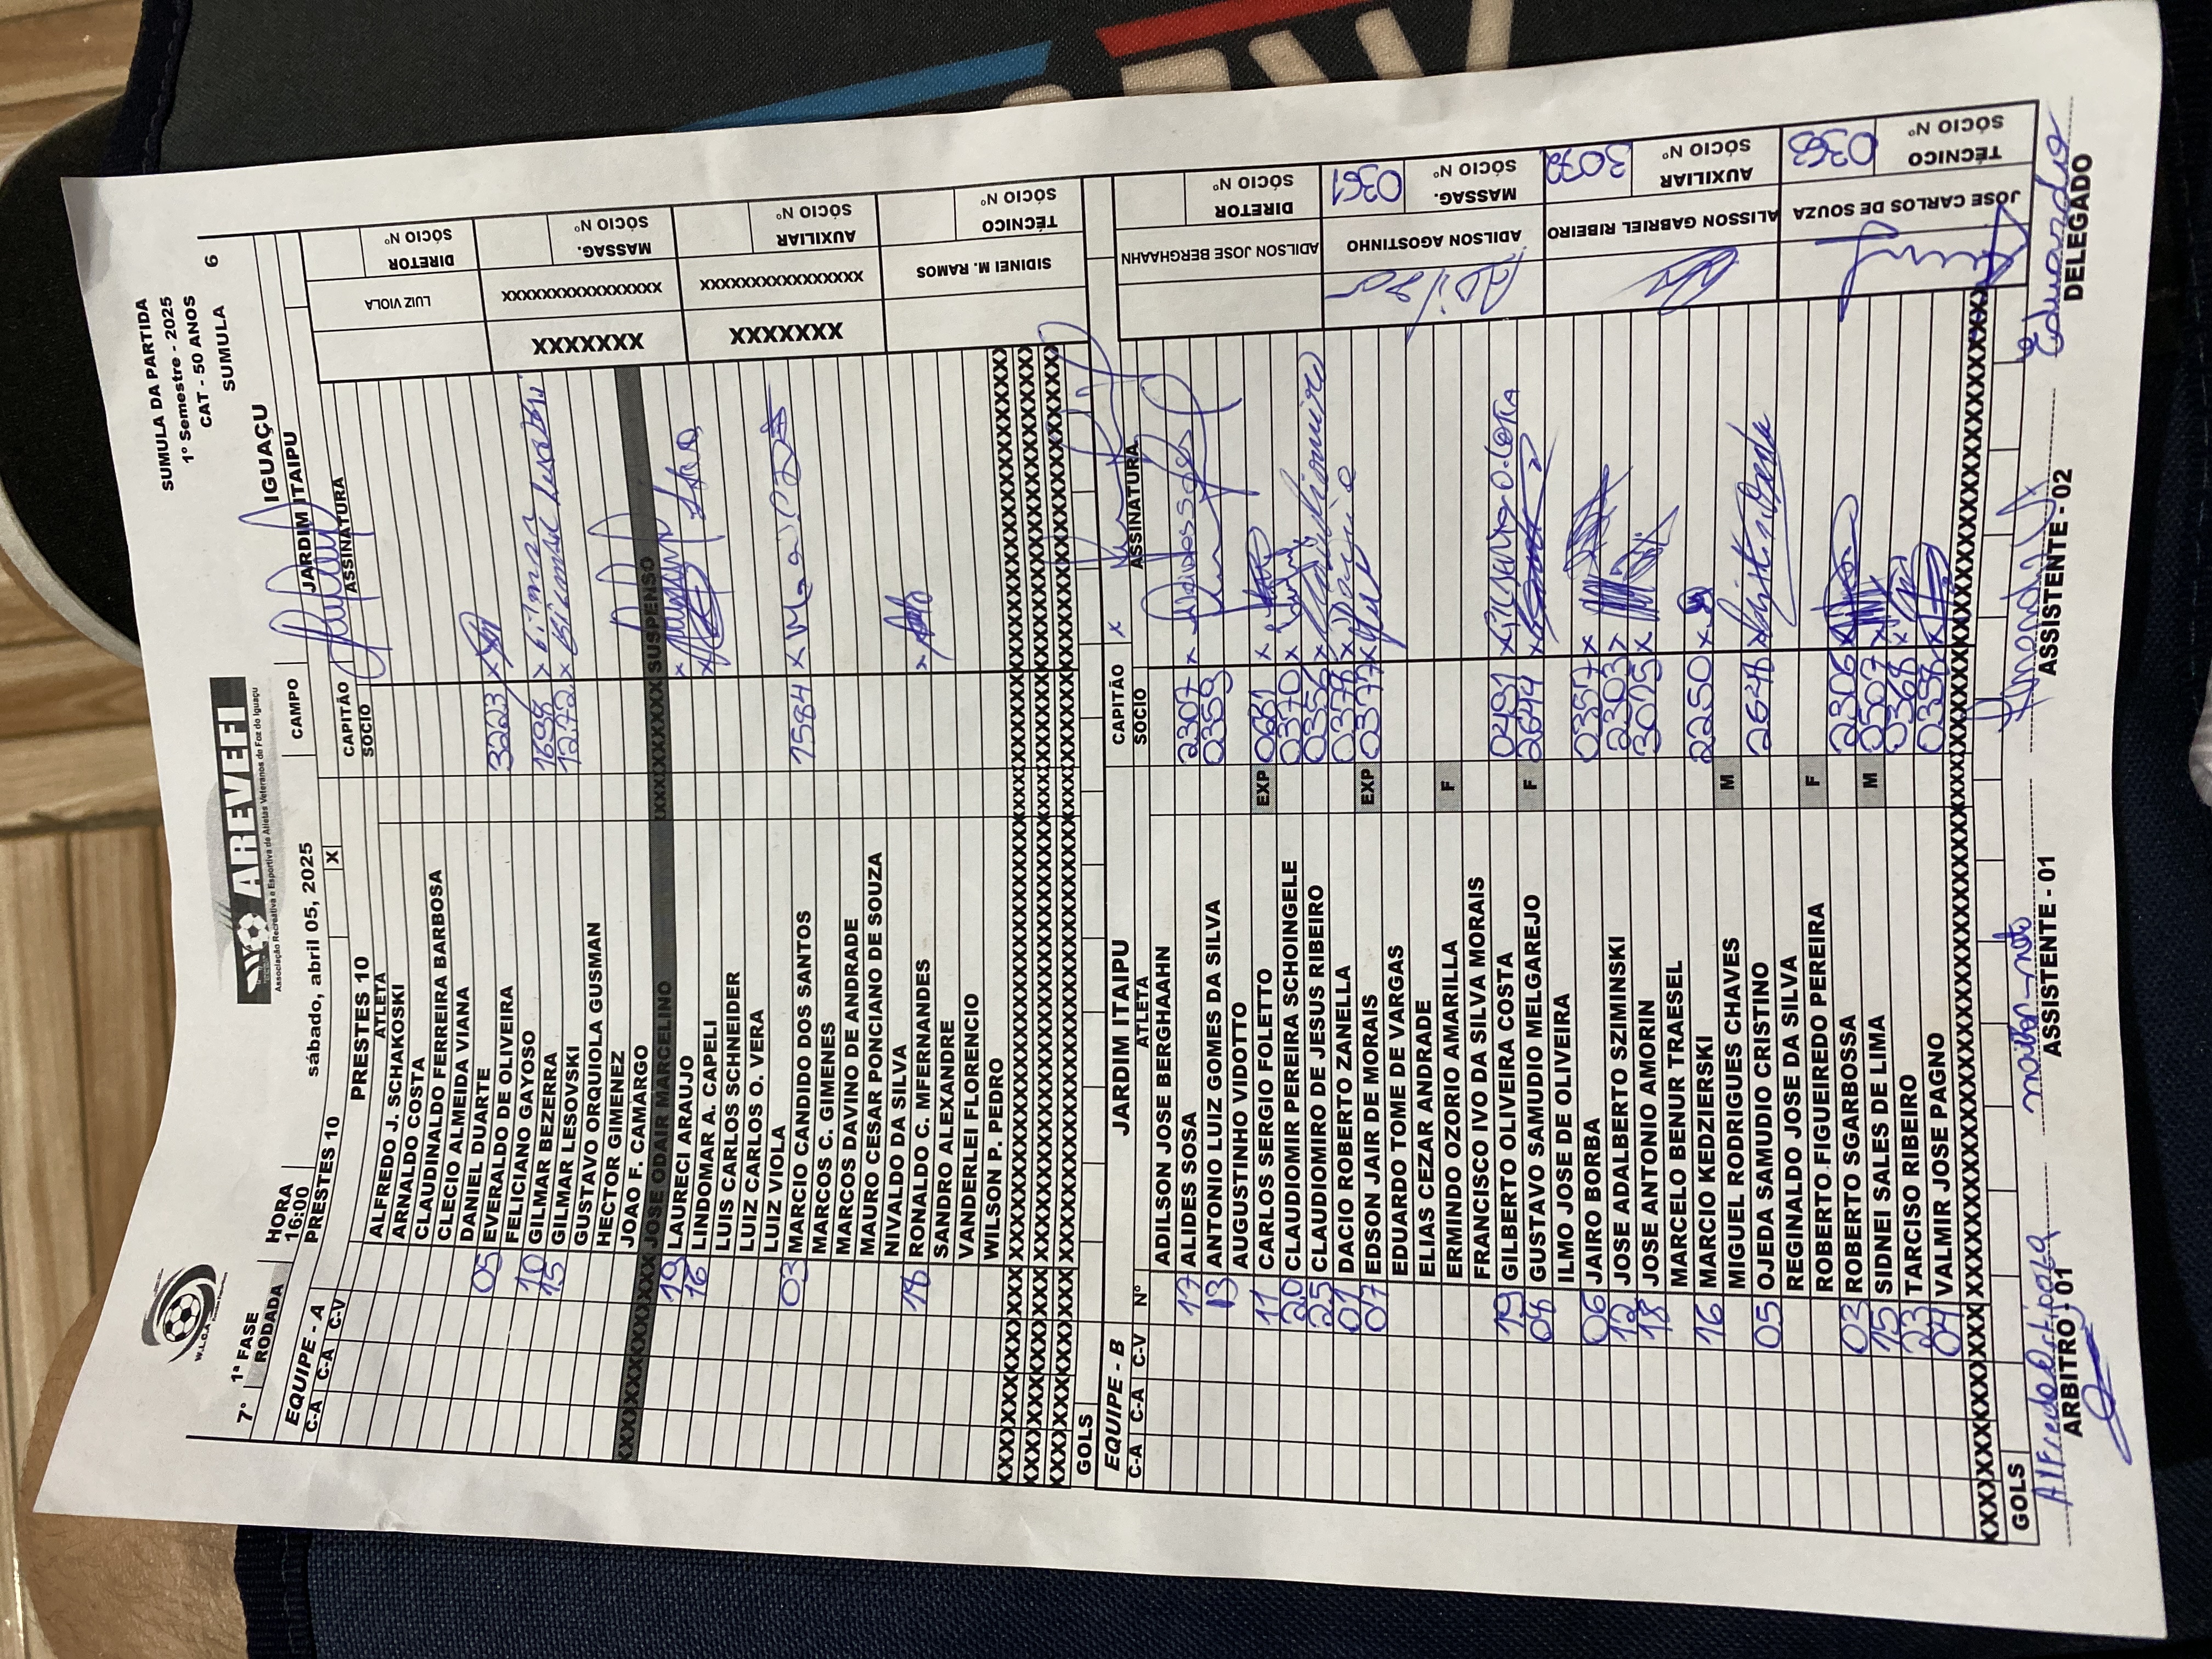 SUMULA DA PARTIDA
1º Semestre - 2025
CAT - 50 ANOS
SUMULA 6
W.L.C.A
AREVEFI
Associação Recreativa e Esportiva de Atletas Veteranos de Foz do Iguaçu
7ª 1ª FASE HORA CAMPO IGUAÇU
RODADA 16:00 sábado, abril 05, 2025
EQUIPE - A PRESTES 10 X JARDIM ITAIPU
C-A C-A C-V PRESTES 10 CAPITÃO
ATLETA SOCIO ASSINATURA
ALFREDO J. SCHAKOSKI
ARNALDO COSTA
CLAUDINALDO FERREIRA BARBOSA
CLECIO ALMEIDA VIANA
DANIEL DUARTE
05 EVERALDO DE OLIVEIRA 3223 x
FELICIANO GAYOSO
10 GILMAR BEZERRA 1698 x
15 GILMAR LESOVSKI 1272 x
GUSTAVO ORQUIOLA GUSMAN
HECTOR GIMENEZ
JOAO F. CAMARGO
JOSE ODAIR MARCELINO SUSPENSO
19 LAURECI ARAUJO x
16 LINDOMAR A. CAPELI x
LUIS CARLOS SCHNEIDER
LUIZ CARLOS O. VERA
LUIZ VIOLA
03 MARCIO CANDIDO DOS SANTOS 1584 x
MARCOS C. GIMENES
MARCOS DAVINO DE ANDRADE
MAURO CESAR PONCIANO DE SOUZA
NIVALDO DA SILVA
18 RONALDO C. MFERNANDES x
SANDRO ALEXANDRE
VANDERLEI FLORENCIO
WILSON P. PEDRO
GOLS
LUIZ VIOLA
DIRETOR
SÓCIO Nº
XXXXXXX
XXXXXXXXXXXXXXXX
MASSAG.
SÓCIO Nº
XXXXXXX
XXXXXXXXXXXXXXXX
AUXILIAR
SÓCIO Nº
SIDINEI M. RAMOS
TÉCNICO
SÓCIO Nº
EQUIPE - B JARDIM ITAIPU CAPITÃO x
C-A C-A C-V Nº ATLETA SOCIO ASSINATURA
ADILSON JOSE BERGHAAHN
17 ALIDES SOSA 2307 x
13 ANTONIO LUIZ GOMES DA SILVA 0359
AUGUSTINHO VIDOTTO
11 CARLOS SERGIO FOLETTO EXP 0681 x
20 CLAUDIOMIR PEREIRA SCHOINGELE 0370 x
25 CLAUDIOMIRO DE JESUS RIBEIRO 0356 x
01 DACIO ROBERTO ZANELLA 0378 x
07 EDSON JAIR DE MORAIS EXP 0377 x
EDUARDO TOME DE VARGAS
ELIAS CEZAR ANDRADE
ERMINDO OZORIO AMARILLA F
FRANCISCO IVO DA SILVA MORAIS
19 GILBERTO OLIVEIRA COSTA 0491 x
08 GUSTAVO SAMUDIO MELGAREJO F 2644 x
ILMO JOSE DE OLIVEIRA
06 JAIRO BORBA 0357 x
12 JOSE ADALBERTO SZIMINSKI 2303 x
18 JOSE ANTONIO AMORIN 3075 x
MARCELO BENUR TRAESEL
16 MARCIO KEDZIERSKI 2250 x
MIGUEL RODRIGUES CHAVES M
05 OJEDA SAMUDIO CRISTINO 2648 x
REGINALDO JOSE DA SILVA
ROBERTO FIGUEIREDO PEREIRA F
02 ROBERTO SGARBOSSA 2306 x
15 SIDNEI SALES DE LIMA M 0507 x
23 TARCISO RIBEIRO 0368 x
04 VALMIR JOSE PAGNO 0358 x
GOLS
ADILSON JOSE BERGHAAHN
DIRETOR
SÓCIO Nº
Adilson
ADILSON AGOSTINHO
MASSAG. 0361
SÓCIO Nº
ALISSON GABRIEL RIBEIRO
AUXILIAR 3072
SÓCIO Nº
JOSE CARLOS DE SOUZA
TÉCNICO 0363
SÓCIO Nº
ARBITRO - 01 ASSISTENTE - 01 ASSISTENTE - 02 DELEGADO